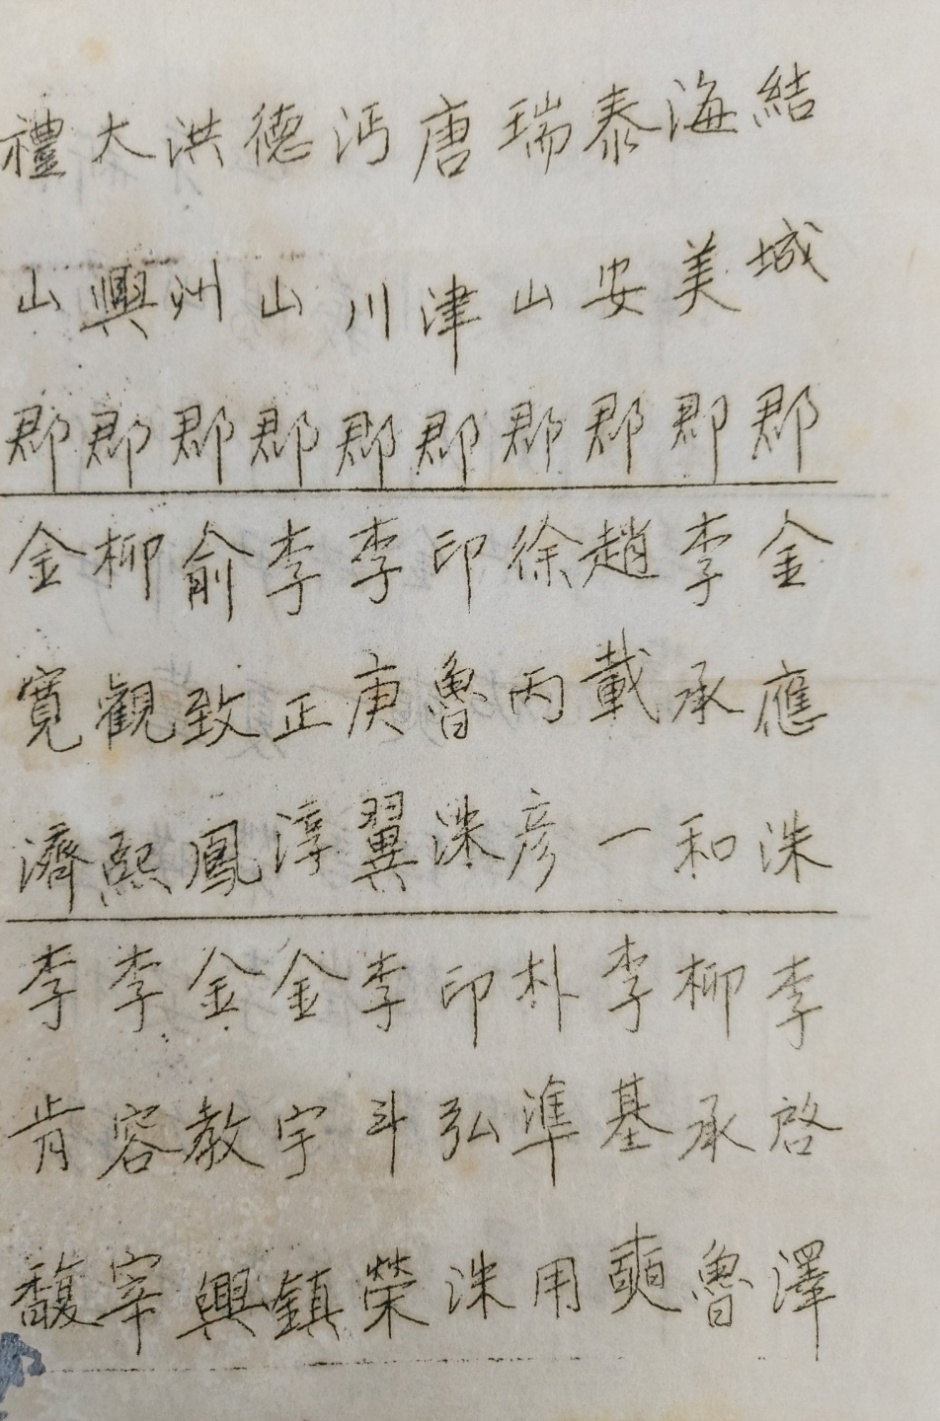 結城郡 金應洙 李啓澤
海美郡 李承和 柳承魯
泰安郡 趙載一 李基奭
瑞山郡 徐丙彦 朴準用
唐津郡 印魯洙 印弘洙
沔川郡 李庚翼 李斗榮
德山郡 李正淳 金宇鎮
洪州郡 俞致鳳 金教興
大興郡 柳觀熙 李容宰
禮山郡 金寬濟 李肯馥